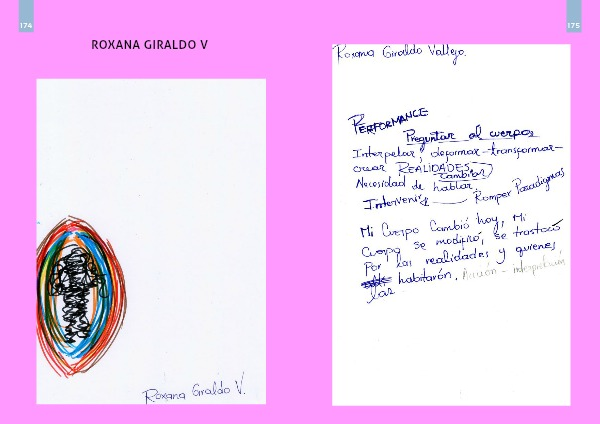 174
ROXANA GIRALDO V
Roxana Giraldo V.
175
Roxana Giraldo Vallejo.
PERFORMANCE
Preguntar al cuerpos
Interpelar, deformar-transformar-
crear REALIDADES,
cambiar
Necesidad de hablar
Intervenir — Romper Paradigmas
Mi Cuerpo Cambió hoy, Mi
Cuerpo se modificó, se trastocó
Por las realidades y quienes
habitarón. Acción - interpretación
las